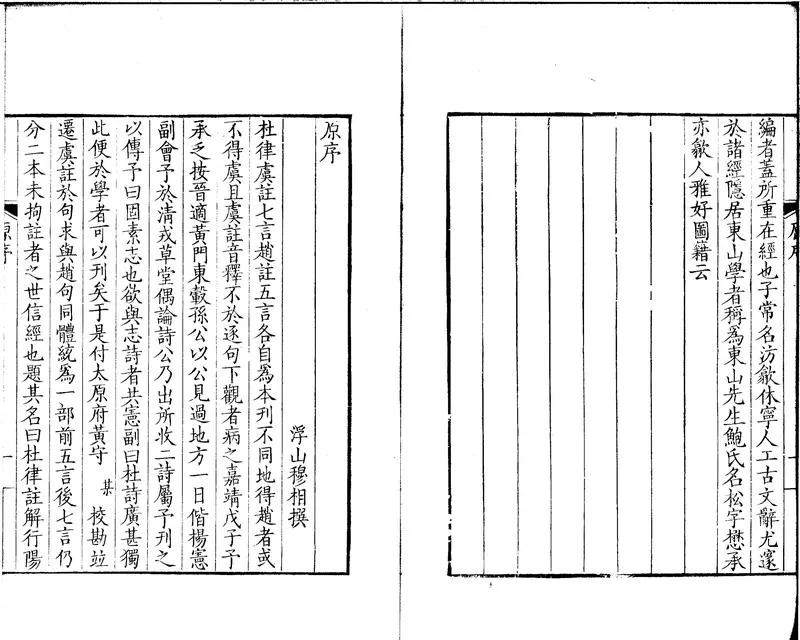 編者蓋所重在經也子常名汸歙休寧人工古文辭尤邃
於諸經隱居東山學者稱為東山先生鮑氏名松字懋承
亦歙人雅好圖籍云
原序
浮山穆相撰
杜律虞註七言趙註五言各自為本刊不同地得趙者或
不得虞且虞註音釋不於逐句下觀者病之嘉靖戊子予
承乏按晉適黃門東轂孫公以公見過地方一日偕楊憲
副會予於清戎草堂偶論詩公乃出所收二詩屬予刊之
以傳予曰固素志也欲與志詩者共憲副曰杜詩廣甚獨
此便於學者可以刊矣于是付太原府黃守某校勘竝
遷虞註於句求與趙句同體統為一部前五言後七言仍
分二本未拘註者之世信經也題其名曰杜律註解行陽
原序
一